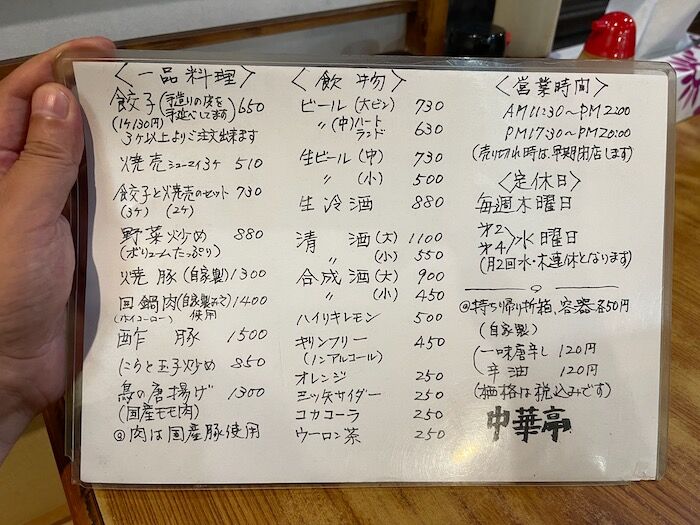 〈一品料理〉
餃子(手造りの皮を手延べしてます) 650
(1ケ130円)
3ケ以上よりご注文出来ます
焼売シューマイ3ケ 510
餃子と焼売のセット 730
(3ケ) (2ケ)
野菜炒め 880
(ボリュームたっぷり)
焼豚(自家製) 1300
回鍋肉(自家製みそ使用) 1400
(ホイコーロー)
酢豚 1500
にらと玉子炒め 850
鳥の唐揚げ 1300
(国産モモ肉)
◎肉は国産豚使用
〈飲物〉
ビール(大ビン) 730
〃(中)ハートランド 630
生ビール(中) 730
〃(小) 500
生冷酒 880
清酒(大) 1100
〃(小) 550
合成酒(大) 900
〃(小) 450
ハイリキレモン 500
キリンフリー 450
(ノンアルコール)
オレンジ 250
三ッ矢サイダー 250
コカコーラ 250
ウーロン茶 250
〈営業時間〉
AM11:30〜PM2:00
PM17:30〜PM20:00
(売り切れ時は、早期閉店します)
〈定休日〉
毎週木曜日
第2
第4〉水曜日
(月2回水・木連休となります)
◎持ち帰り折箱、容器各50円
(自家製)
(一味唐辛し 120円
辛油 120円
(価格は税込みです)
中華亭